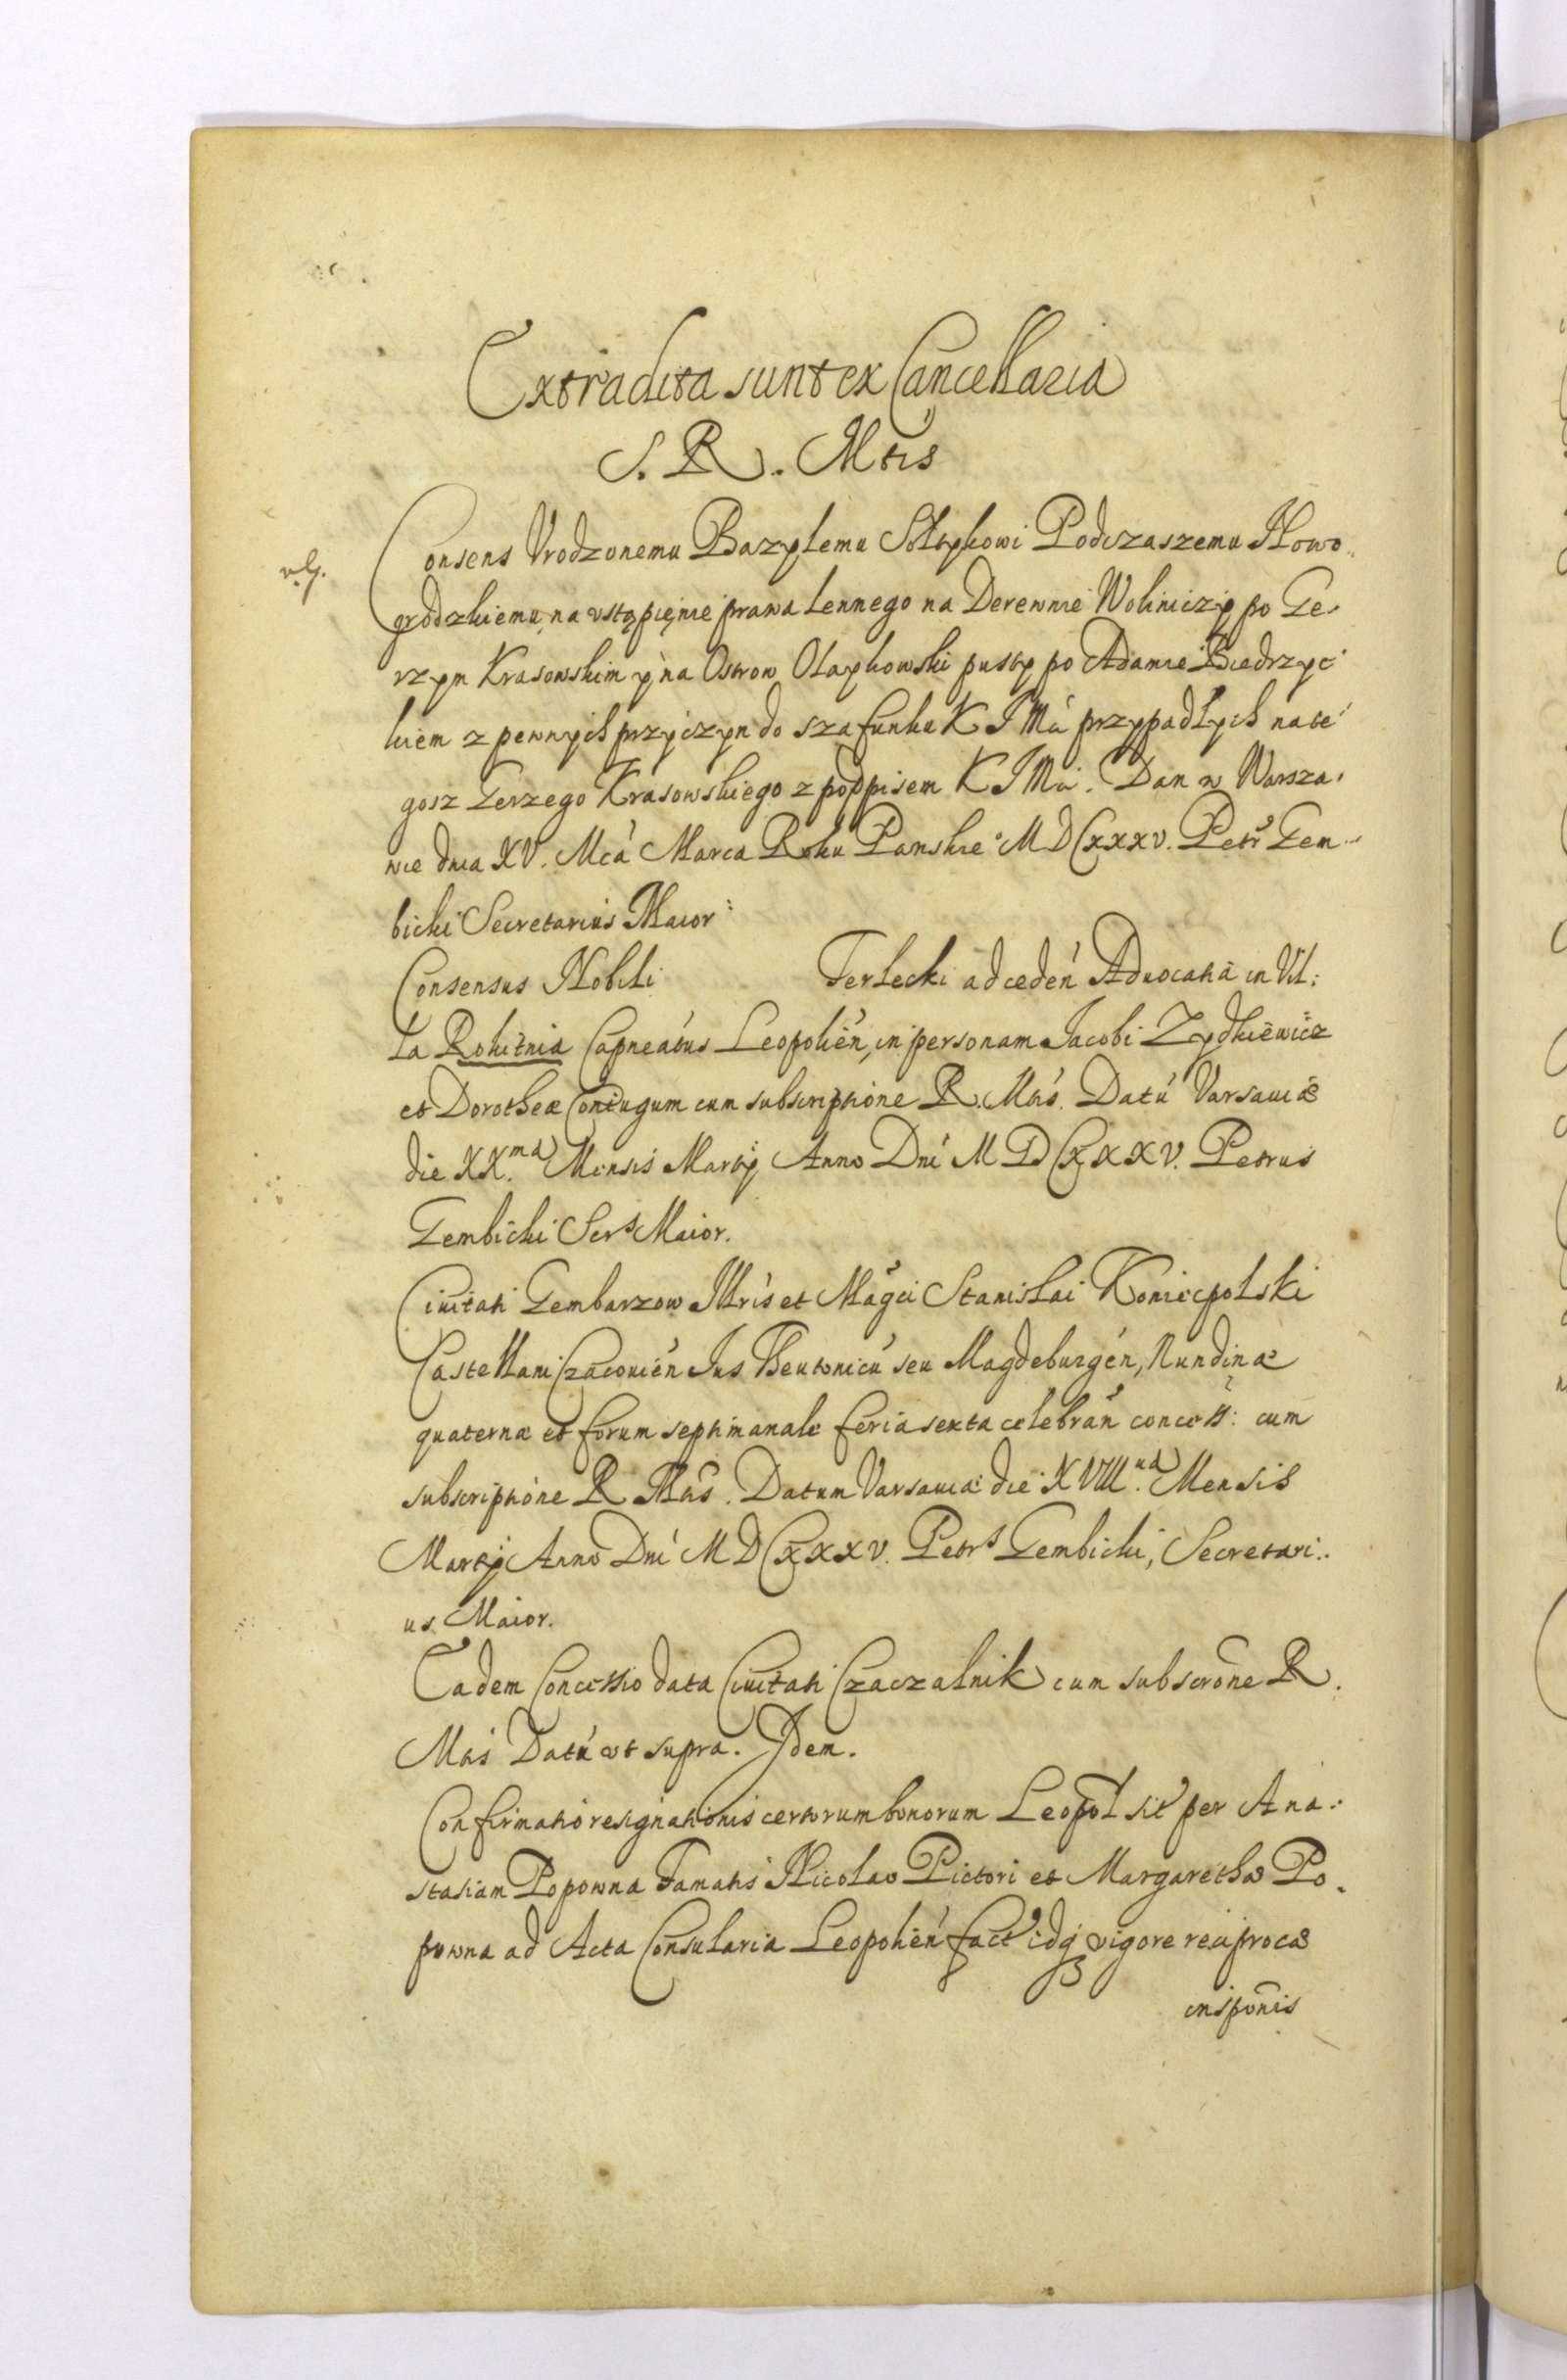 Extradita sunt ex Cancellaria
S. R. Mtis
Consens Vrodzonemu Bazylemu Sołtykowi Podczaszemu Nowo
grodzkiemu, na vstąpięnie prawa Lennego na Derewnie Woliniczÿ po Je
rzym Krasowskim ÿ na Ostrow Olaykowski pusty po Adamie Biedrzyc
kiem z pewnych przyczyn do szafunku K J Mći przypadłych na te
gosz Jerzego Krasowskiego z podpisem K J Mći. Dan w Warsza
wie dnia XV. Mcá Marca Roku Panskie° MDCXXXV. Petrꝰ Gem
bicki Secretarius Maior
Consensus Nobili Terlecki ad ceden̄ Aduocatiā in Vil:
la Rokitnia Capneatus Leopolien̄, in personam Jacobi Zydkiewicz
et Dorotheæ Coniugum cum subscriptione R. Mtis. Datū Varsauiæ
die XX.ma Mensis Martÿ Anno Dni M D C X X X V. Petrus
Gembicki Sers Maior.
Ciuitati Gembarzow Illris et Magci Stanislai Koniecpolski
Castellani Cracouien̄ Jus Theutonicū seu Magdeburgen̄, Nundinæ
quaternæ et forum septimanale feria sexta celebran̄ concess: cum
subscriptione R Mtis. Datum Varsauiæ die XVIII.ua Mensis
Martÿ Anno Dni M D C X X X V. Petrs Gembicki, Secretari
us Maior.
Eadem Concessio data Ciuitati Czaczalnik cum subscrone R.
Mtis Datū vt supra. Idem.
Confirmatio resignationis certorum bonorum Leopol sit per Ana
stasiam Popowna Famatis Nicolao Pictori et Margarethæ Po
powna ad Acta Consularia Leopolien̄ fact idqꝫ vigore reciprocæ
insponis